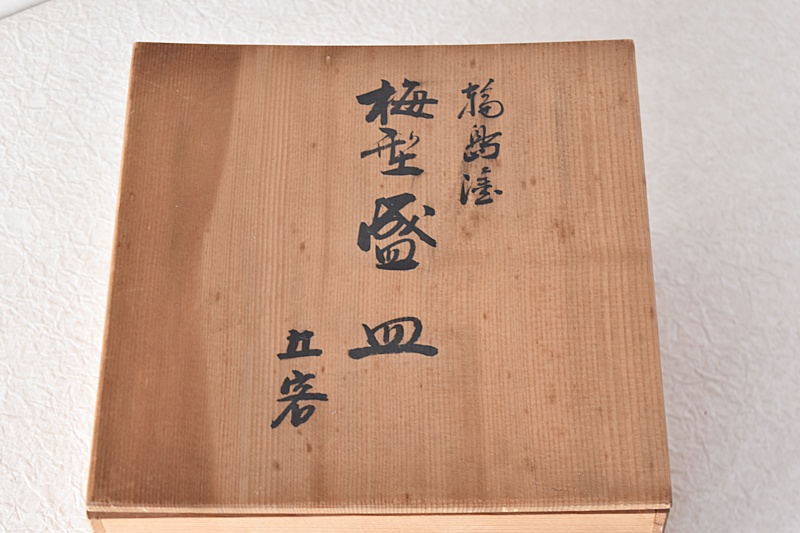 輪島塗
梅型盛皿
五客